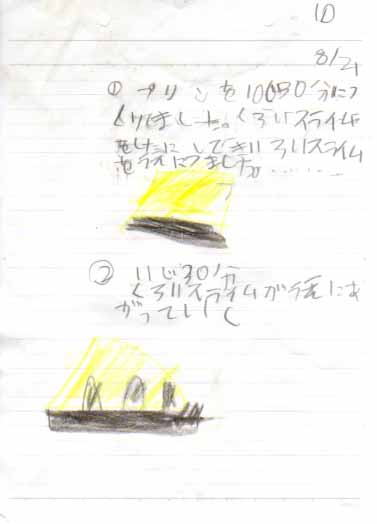 10
8/21
① プリンを10じ30分につ
くりました。くろいスライム
を下にしてきいろいスライム
を上につました。
② 11じ30分
くろいスライムが上にあ
がっていく